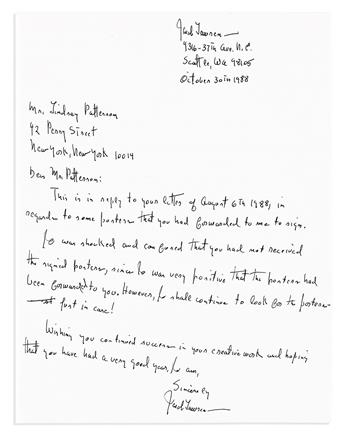 Jacob Lawrence
4316-37th Ave. N.E.
Seattle, WA 98105
October 30th 1988
Mr. Lindsay Patterson
42 Perry Street
New York, New York 10014
Dear Mr. Patterson:
This is in reply to your letter of August 6th 1988, in
regards to some posters that you had forwarded to me to sign.
I was shocked and confused that you had not received
the signed posters, since I was very positive that the posters had
been forwarded to you. However, I shall continue to look for the posters
just in case!
Wishing you continued success in your creative work and hoping
that you have had a very good year, I am,
Sincerely
Jacob Lawrence